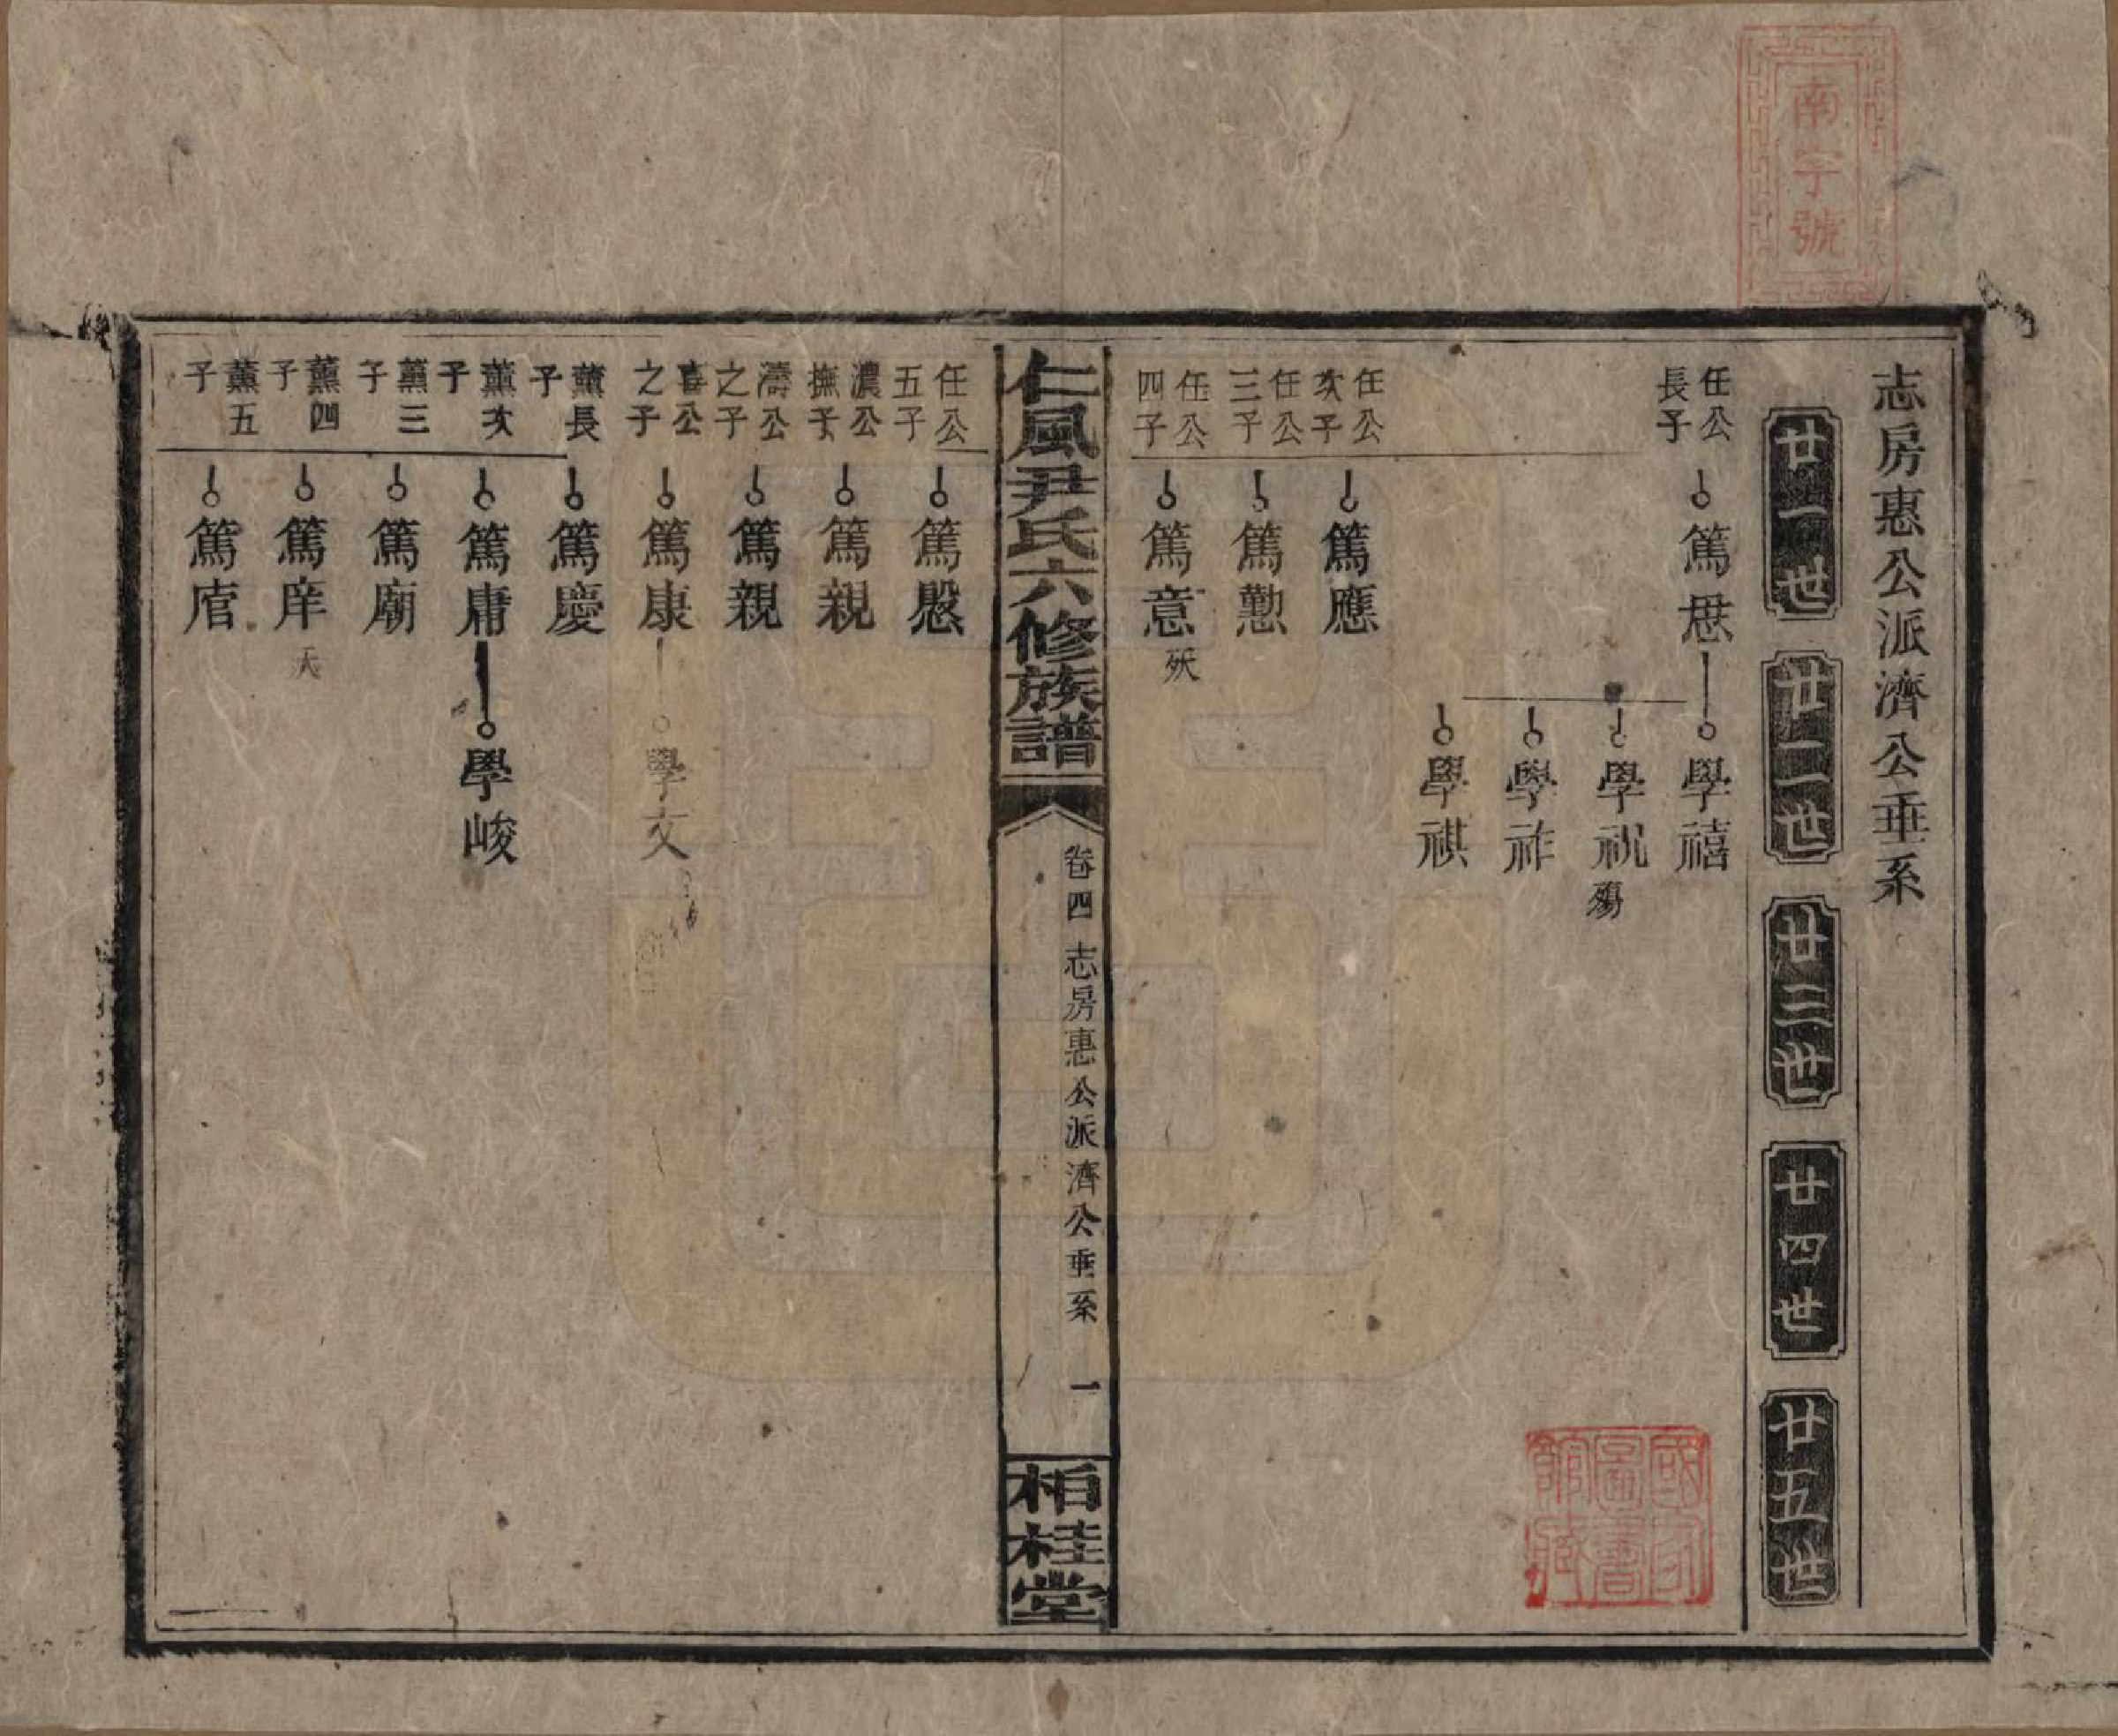 南字號
志房惠公派濟公垂系
廿一世
廿二世
廿三世
廿四世
廿五世
任公長子
篤㤙
學禧
學祝 殤
學祚
學祺
任公次子
篤應
任公三子
篤懃
任公四子
篤意 殀
仁風尹氏六修族譜
卷四 志房惠公派濟公垂系 一
柏桂堂
任公五子
篤慇
濃公撫子
篤親
濤公之子
篤親
喜公之子
篤康
學文
薰長子
篤慶
薰次子
篤庸
學峻
薰三子
篤廟
薰四子
篤庠 夭
薰五子
國家圖書館藏